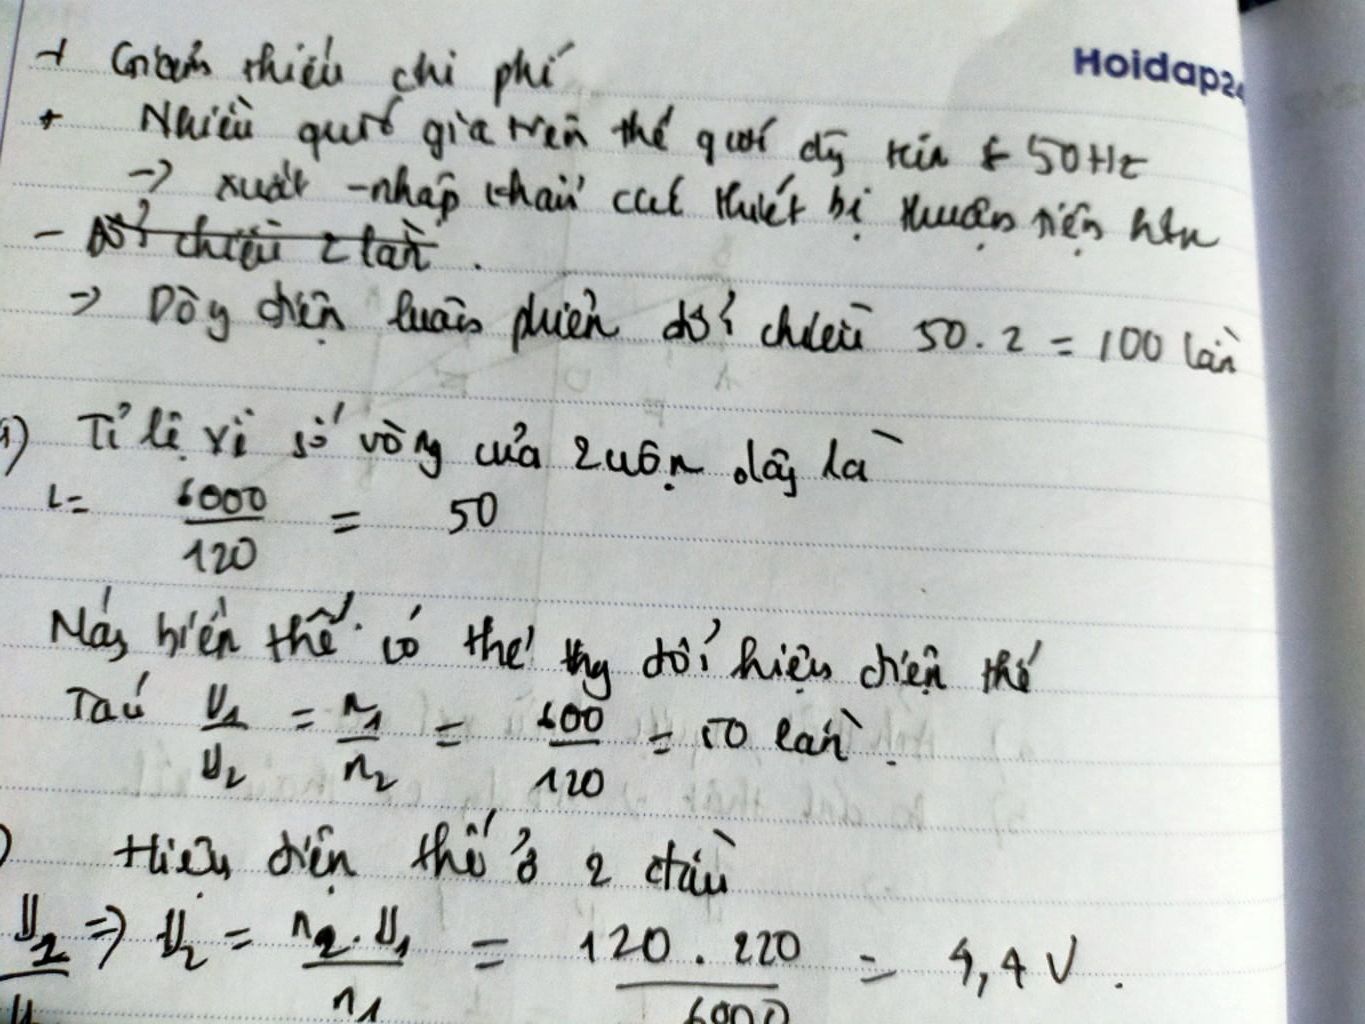 + Giảm thiểu chi phí
Hoidap24
+ Nhiều quố gia trên thế giới dùng f 50Hz
-> xuất - nhập khẩu các thiết bị thuận tiện hơn
- Đổi chiều 2 lần.
=> Dòng điện luân phiên đổi chiều 50.2 = 100 lần
) Tỉ lệ số vòng của 2 cuộn dây là
= 6000/120 = 50
Máy biến thế có thể thay đổi hiệu điện thế
U1/U2 = n1/n2 = 600/120 = 50 lần.
) Hiệu điện thế ở 2 đầu
=> U2 = n2.U1/n1 = 120.220/6000 = 4,4V.